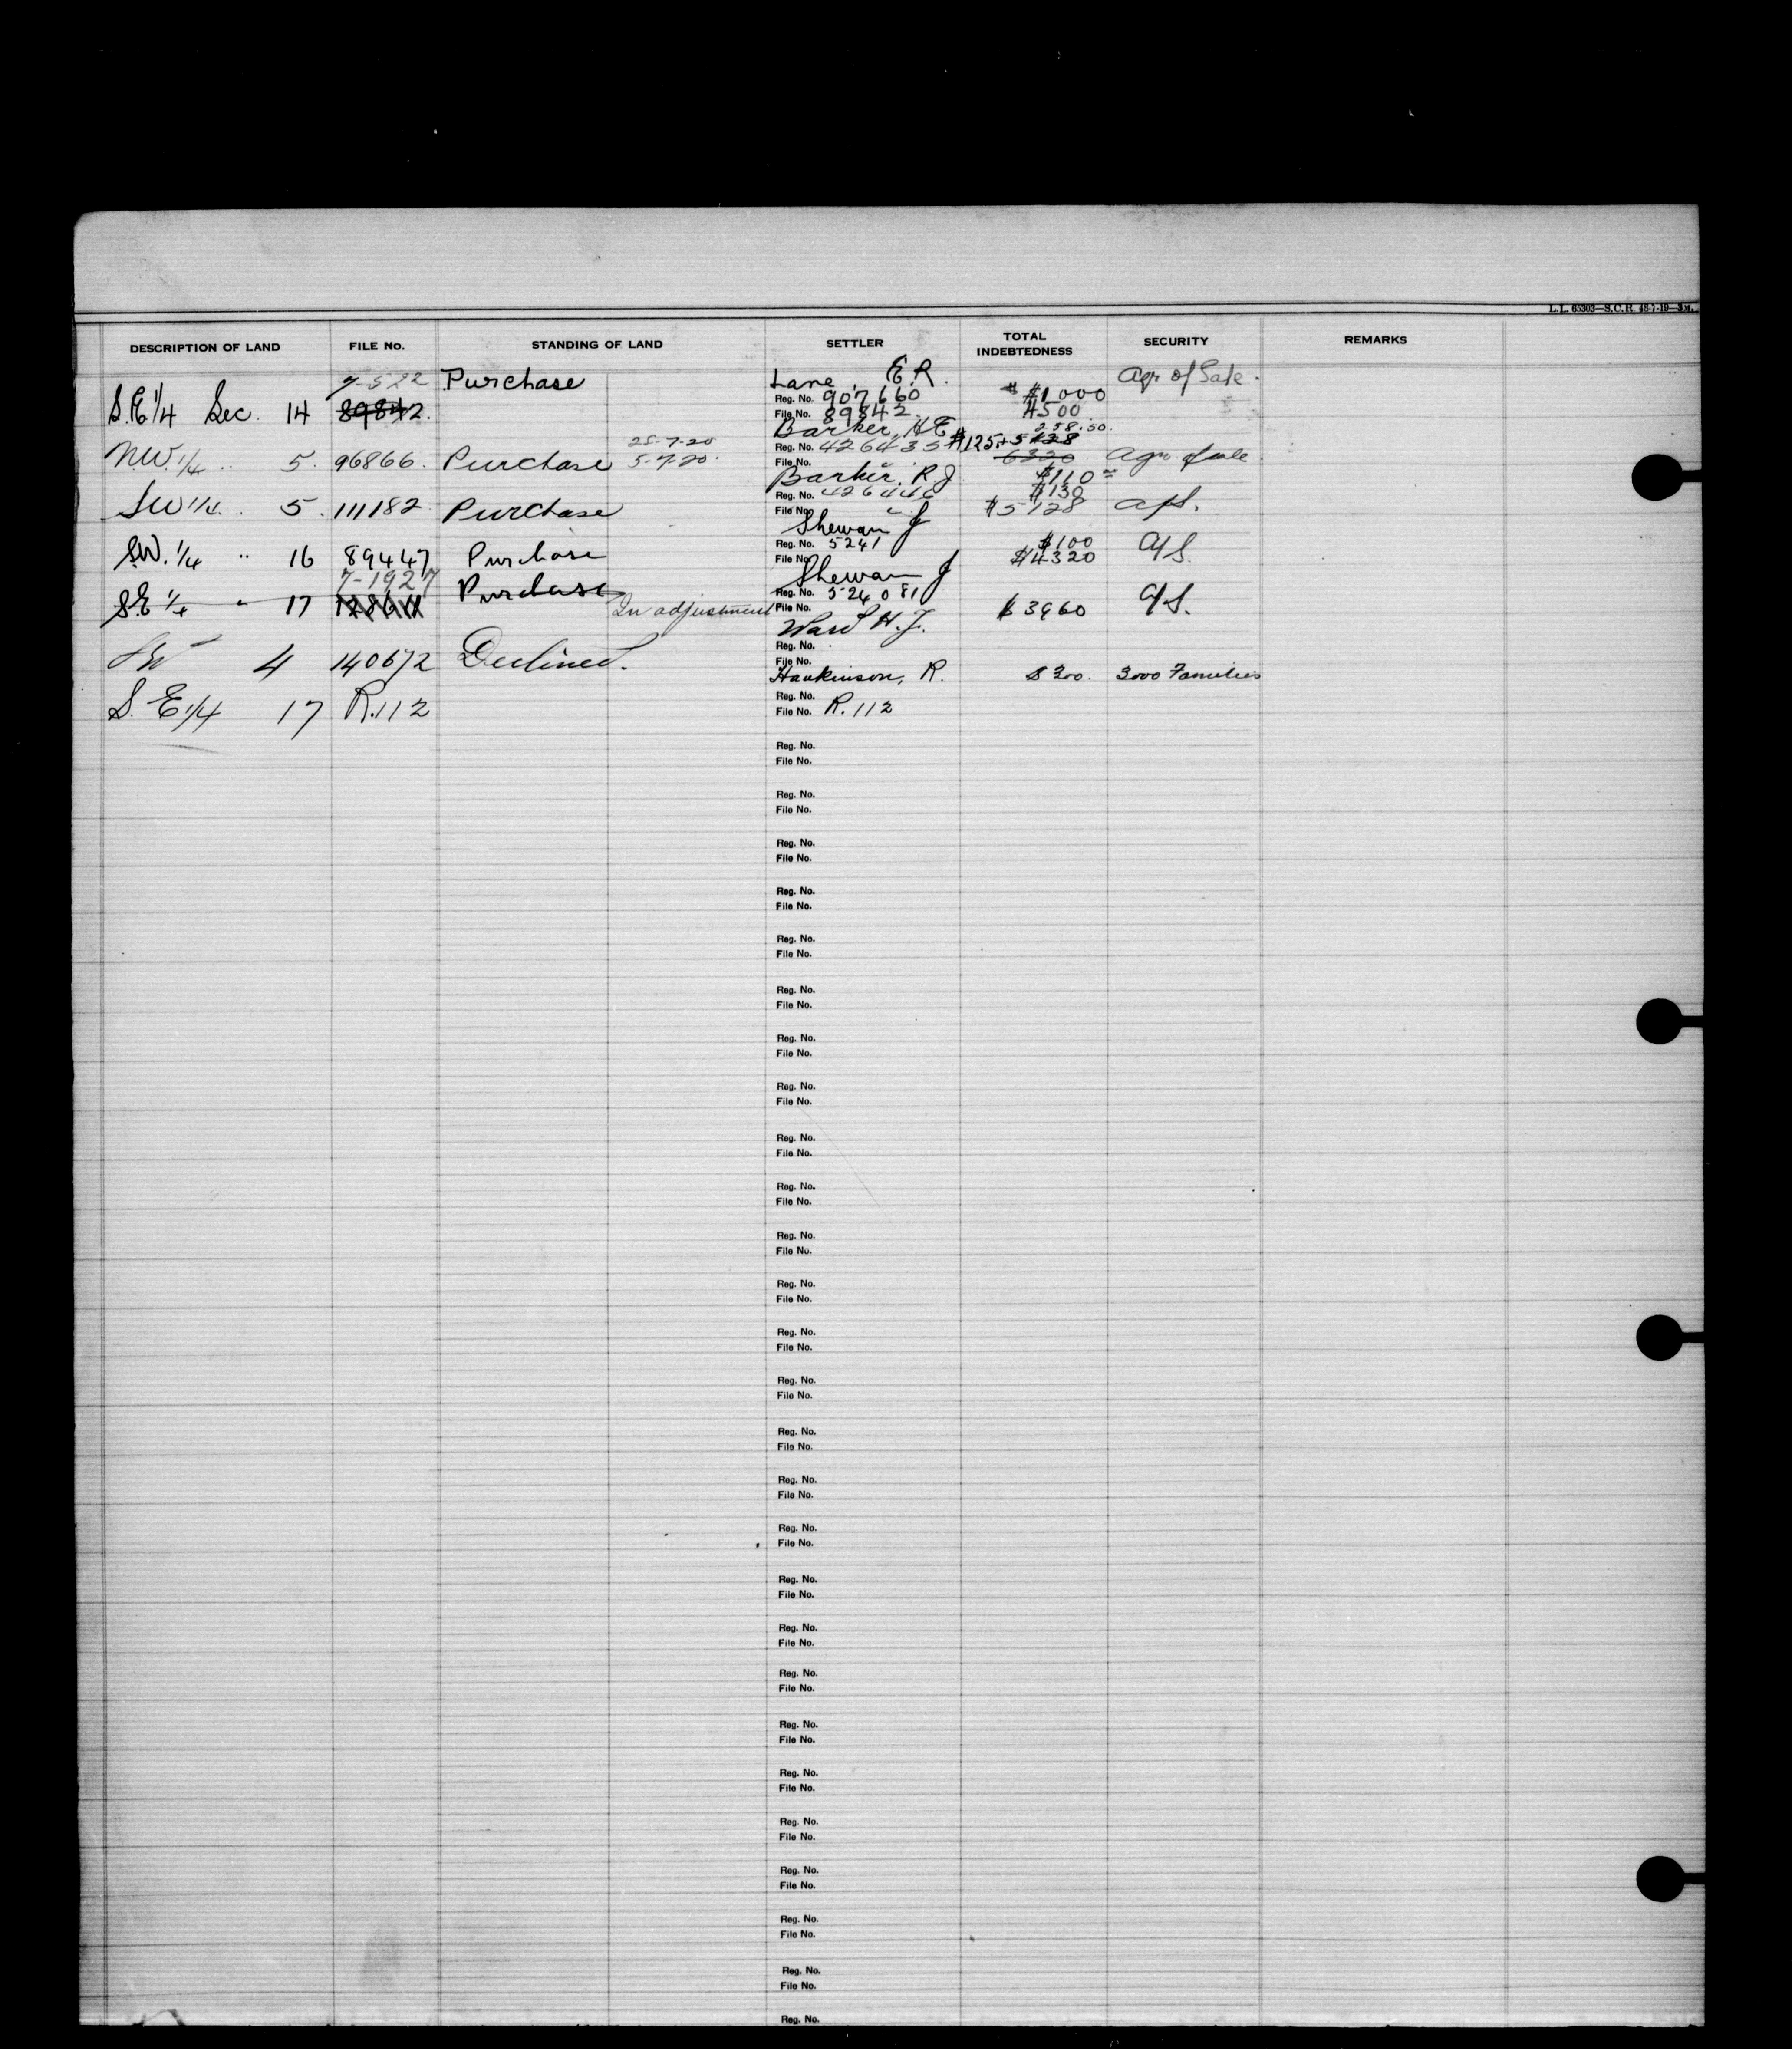 L.L. 65303—S.C.R. 48-7-19—3M.
DESCRIPTION OF LAND FILE NO. STANDING OF LAND SETTLER TOTAL INDEBTEDNESS SECURITY REMARKS
7-522 Purchase Lane, E.R. $1000 Agr of Sale.
Reg. No. 907660
S.E 1/4 Sec. 14 89842. File No. 89842. $500
Barker, H E 258.50.
25-7-20 Reg. No. 426435 $125 + 5128
N.W. 1/4 .. 5. 96866. Purchase 5-7-20. File No. 6320 Agr of sale.
Barker, R. J $110
Reg. No. $130
SW 1/4 . 5. 111182 Purchase File No. " $5128 a/s.
Shewan J
Reg. No. 5241 $100
S.W. 1/4 .. 16 89447 Purchase File No. $4320 a/S.
7-1927 Purchase Shewan J
Reg. No. 524081
S.E 1/4 " 17 In adjustment File No. $3960 a/S.
Ward H. J.
Reg. No.
SW 4 140672 Declined. File No.
Hankinson, R. $300. 3000 Families
Reg. No.
S. E 1/4 17 R.112 File No. R.112
Reg. No.
File No.
Reg. No.
File No.
Reg. No.
File No.
Reg. No.
File No.
Reg. No.
File No.
Reg. No.
File No.
Reg. No.
File No.
Reg. No.
File No.
Reg. No.
File No.
Reg. No.
File No.
Reg. No.
File No.
Reg. No.
File No.
Reg. No.
File No.
Reg. No.
File No.
Reg. No.
File No.
Reg. No.
File No.
Reg. No.
File No.
Reg. No.
File No.
Reg. No.
File No.
Reg. No.
File No.
Reg. No.
File No.
Reg. No.
File No.
Reg. No.
File No.
Reg. No.
File No.
Reg. No.
File No.
Reg. No.
File No.
Reg. No.